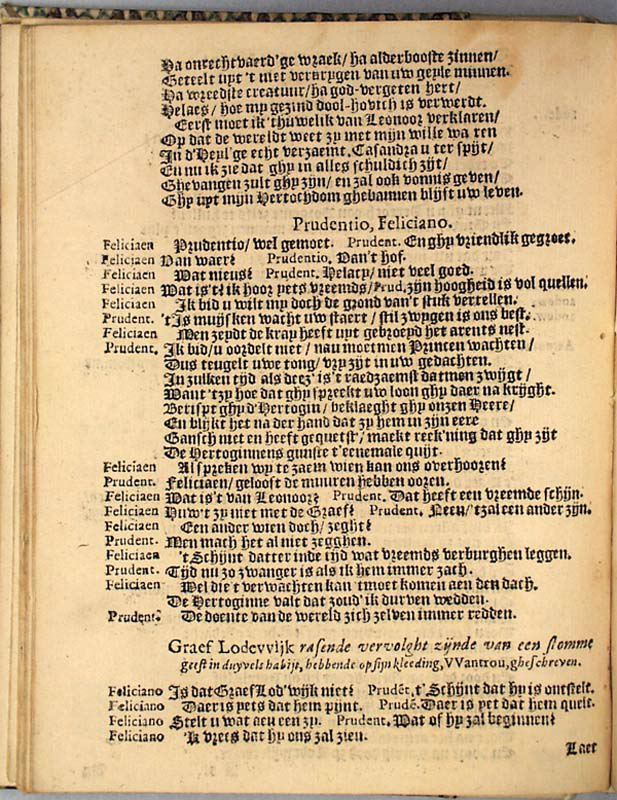 Ha onrechtvaerd'ge wraek/ ha alderbooste zinnen/
Geteelt uyt 't niet verkrygen van uw geyle minnen.
Ha wreedste creatuur/ ha god-vergeten hert/
Helaes/ hoe my gezind dool-hovich is verwerdt.
Eerst moet ik 'thuwelik van Leonoor verklaren/
Op dat de wereldt weet zy met mijn wille wa ren
In d'Heyl'ge echt verzaemt. Casandra u ter spijt/
En nu ik zie dat ghy in alles schuldich zijt/
Ghevangen zult ghy zyn/ en zal ook vonnis geven/
Ghy uyt mijn Hertochdom ghebannen blijft uw leven.
Prudentio, Feliciano.
Feliciaen Prudentio/ wel gemoet. Prudent. En ghy vriendlik gegroet.
Feliciaen Van waer? Prudentio. Van't hof.
Feliciaen Wat nieus? Prudent. Helacy/ niet veel goed.
Feliciaen Wat is't? ik hoor yets vreemds/ Prud. zijn hoogheid is vol quellen.
Feliciaen Ik bid u wilt my doch de grond van't stuk vertellen.
Prudent. 't Is muysken wacht uw staert/ stil zwygen is ons best.
Feliciaen Men zeydt de kray heeft uyt gebroeyd het arents nest.
Prudent. Ik bid/ u oordelt niet/ nau moet men Princen wachten/
Dus teugelt uwe tong/ vry zyt in uw gedachten.
In zulken tijd als deez' is 't raedzaemst datmen zwijgt/
Want 'tzy hoe dat ghy spreekt uw loon ghy daer na krijght.
Berispt ghy d'Hertogin/ beklaeght ghy onzen Heere/
En blijkt het na der hand dat zy hem in zijn eere
Gansch niet en heeft gequetst/ maekt reek'ning dat ghy zijt
De Hertoginnens gunste t'eenemale quijt.
Feliciaen Al spreken wy te zaem wien kan ons overhooren?
Prudent. Feliciaen/ geloost de muuren hebben ooren.
Feliciaen Wat is't van Leonoor? Prudent. Dat heeft een vreemde schijn.
Feliciaen Huw't zy niet met de Graef? Prudent. Neen/ 'tzal een ander zijn.
Feliciaen Een ander wien doch/ zeght?
Prudent. Men mach het al niet zegghen.
Feliciaen 't Schijnt datter inde tijd wat vreemds verburghen leggen.
Prudent. Tijd nu zo zwanger is als ik hem immer zach.
Feliciaen Wel die 't verwachten kan tmoet komen aen den dach.
De Hertoginne valt dat zoud' ik durven wedden.
Prudent. De doente van de wereld zich zelven immer redden.
Graef Lodevvijk rasende vervolght zijnde van een stomme
geest in duyvels habijt, hebbende op sijn kleeding, VVantrou, gheschreven.
Feliciano Is dat Graef Lod'wijk niet? Prudēt. t'Schijnt dat hy is ontstelt.
Feliciano Daer is yets dat hem pijnt. Prudē. Daer is yet dat hem quelt.
Feliciano Stelt u wat aen een zy. Prudent. Wat of hy zal beginnen?
Feliciano 'k Vrees dat hy ons zal zien.
Laet